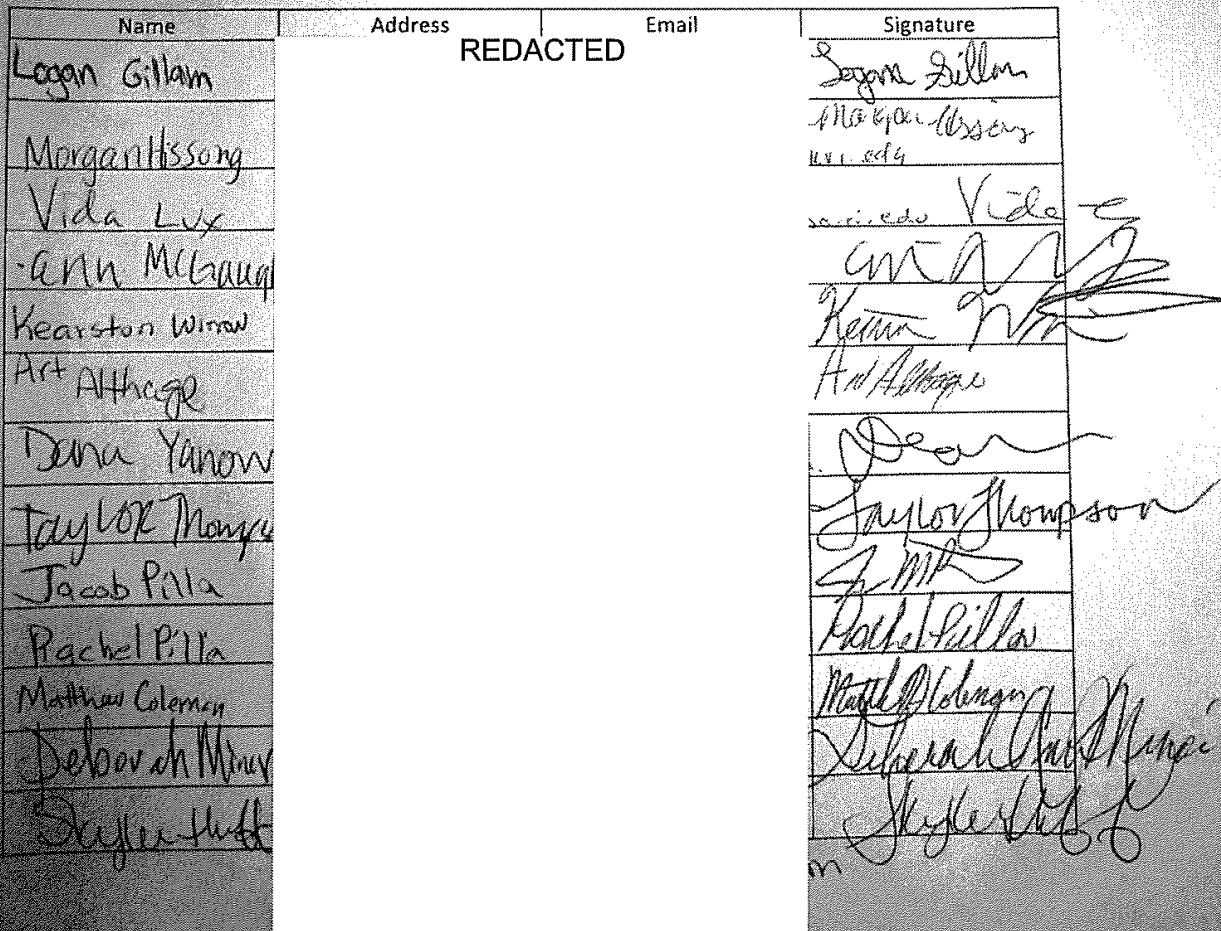 Name Address Email Signature
REDACTED
Logan Gillam Logan Gillam
Morgan Hissong Morgan Hissong
Vida Lux Vida
Ann McGaugh
Kearston
Art Althage Art Althage
Dana Yanow
Taylor Thomps Taylor Thompson
Jacob Pilla
Rachel Pilla Rachel Pilla
Matthew Coleman Matth Coleman
Deborah Miner Deborah
Skyler Huff Skyler Huff